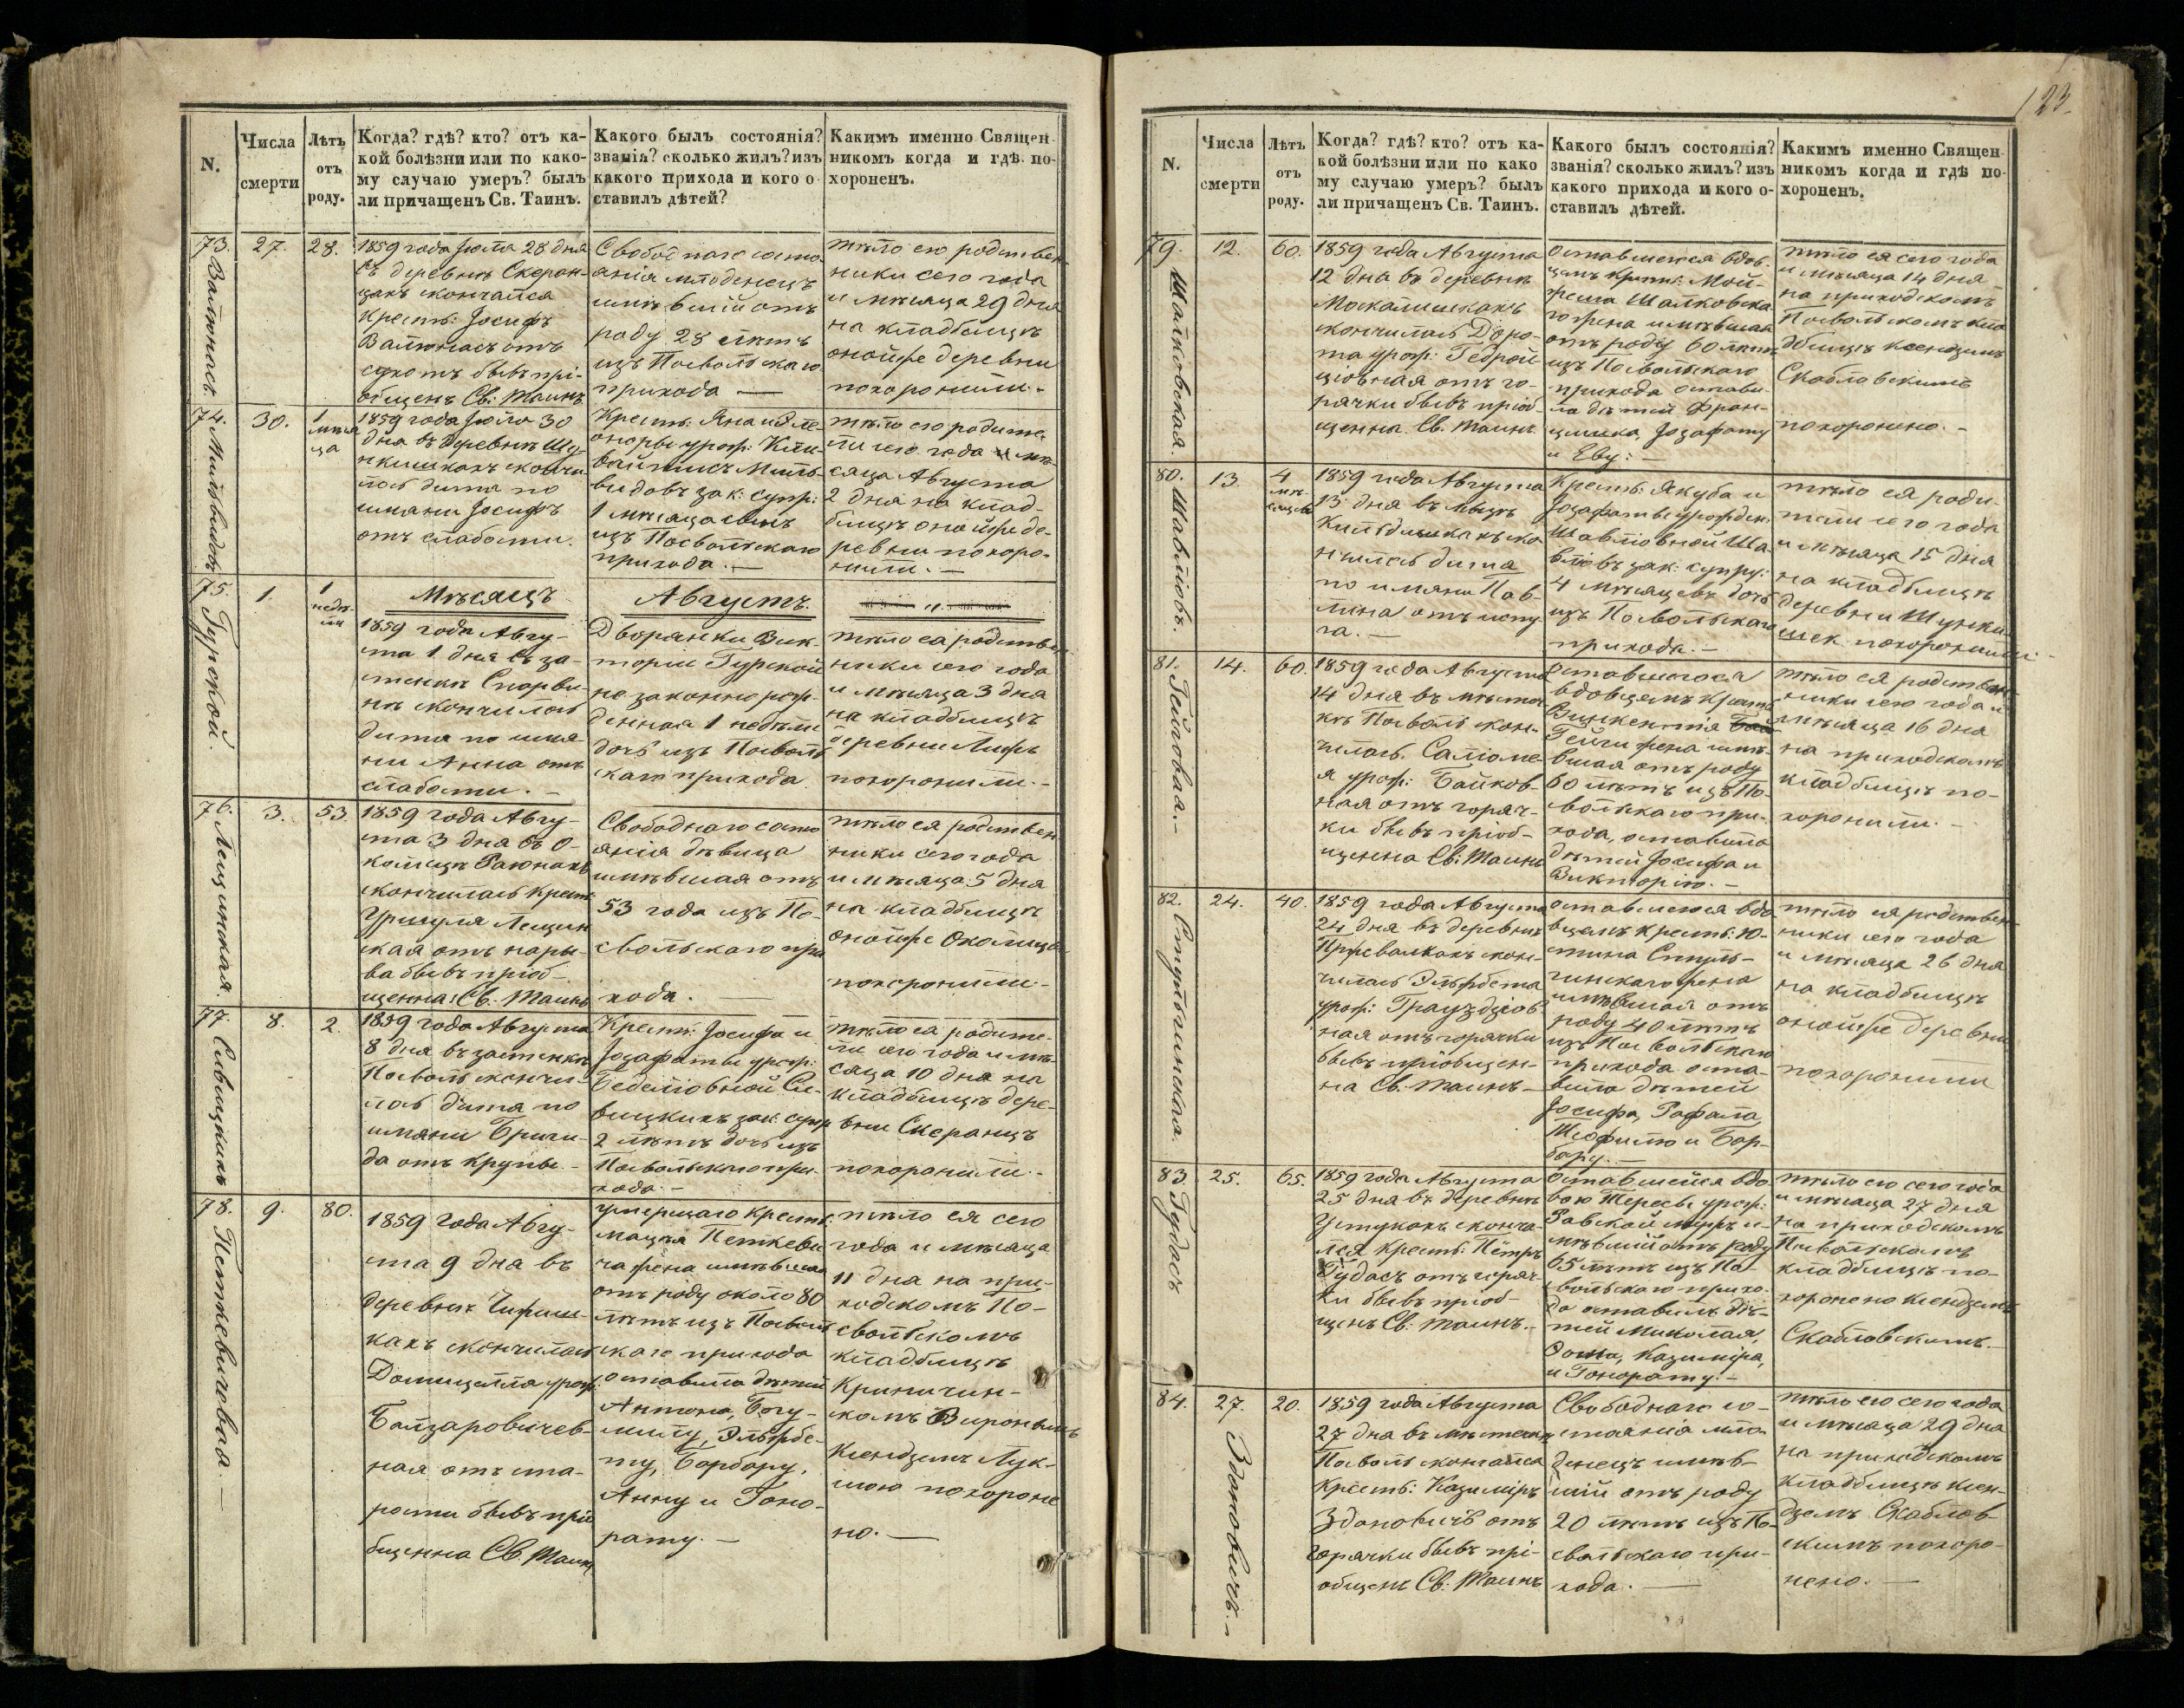 123.
N.
Числа
смерти
Лѣтъ
отъ
роду.
Когда? гдѣ? кто? отъ ка-
кой болѣзни или по како-
му случаю умеръ? былъ
ли причащенъ Св. Таинъ.
Какого былъ состоянія?
званія? сколько жилъ? изъ
какого прихода и кого о-
ставилъ дѣтей?
Какимъ именно Священ-
никомъ когда и гдѣ по-
хороненъ.
73.
Валюнасъ.
27.
28.
1859 года Іюля 28 дня
въ деревнѣ Скеран-
цахъ скончался
крест: Іосифъ
Валюнасъ отъ
бывъ прі-
общенъ Св: Таинъ
Свободнаго состо
янія младенецъ
имѣвшій отъ
роду 28 лѣтъ
изъ Посвольскаго
прихода —
тѣло его родствен
ники сего года
и мѣсяца 29 дня
на кладбищѣ
онойже деревни
похоронили. -
74.
Мильвидовъ
30.
1
мѣся
ца
1859 года Іюля 30
дня въ деревнѣ Шу-
нкишкахъ сконча
лось дитя по
имяни Іосифъ
отъ слабости.
Крест: Яна и Эле-
оноры урож:
Миль-
видовъ зак: супр:
1 мѣсяца сынъ
изъ Посвольскаго
прихода. —
тѣло его родите-
ли сего года и мѣ-
сяца Августа
2 дня на клад-
бищѣ онойже де-
ревни похоро-
нили. —
75.
Гурской.
1.
1
недѣ-
ли
Мѣсяцъ
Августъ.
1859 года Авгу-
ста 1 дня въ за-
стенкѣ Скорви-
нѣ скончилось
дитя по имя-
ни Анна отъ
слабости. —
Дворянки Вик-
торіи Гурской
незаконнорож-
денная 1 недѣли
дочь изъ Посволь
скаго прихода
тѣло ея родствен
ники сего года
и мѣсяца 3 дня
на кладбищѣ
деревни
похоронили. -
76.
Лещинская.
3.
53.
1859 года Авгу-
ста 3 дня въ о-
колицѣ Раюнахъ
скончилась крест
Уршуля Лещин
ская отъ нары-
ва бывъ пріоб-
щенна: Св. Таинъ
Свободнаго состо
янія дѣвица
имѣвшая отъ
53 года изъ По-
свольскаго при
хода. —
тѣло ея родствен
ники сего года
и мѣсяца 5 дня
на кладбищѣ
онойже Околицы
похоронили -
77.
Сивицкихъ
8.
2.
1859 года Августа
8 дня въ застенкѣ
Посволь скончи-
лось дитя по
имяни Бриги-
да отъ крупы. -
Крест: Іосифа и
Іозафаты урож:
Бедаліовной Си-
вицкихъ зак: супр
2 лѣтъ дочь изъ
Посвольскаго при-
хода. -
тѣло ея родите-
ли сего года и мѣ-
сяца 10 дня на
кладбищѣ дере-
вни Скеранцъ
похоронили. -
78.
Петкевичовая. —
9.
80.
1859 года Авгу-
ста 9 дня въ
деревнѣ
кахъ скончилась
Домицелля урож:
Балзаровичев-
ная отъ ста-
рости бывъ прі
бщенна Св. Таинъ
умершаго крест:
Мацѣя Петкеви
ча жена имѣвшая
отъ роду около 80
лѣтъ изъ Посволь
скаго прихода
оставила дѣтей
Антона, Богу-
милу, Эльжбе-
ту, Барбару,
Анну и Гоно-
рату. —
тѣло ея сего
года и мѣсяца
11 дня на при-
ходскомъ По-
свольскомъ
кладбищѣ
Криничин-
скомъ
Ксендземъ Лук-
шою похороне
но. —
N.
Числа
смерти
Лѣтъ
отъ
роду.
Когда? гдѣ? кто? отъ ка-
кой болѣзни или по како
му случаю умеръ? былъ
ли причащенъ Св. Таинъ.
Какого былъ состоянія?
званія? сколько жилъ? изъ
какого прихода и кого о-
ставилъ дѣтей.
Какимъ именно Священ
никомъ когда и гдѣ по-
хороненъ.
79.
Шалковская.
12.
60.
1859 года Августа
12 дня въ деревнѣ
Москалишкахъ
скончилась Доро-
та урож: Гедрой-
ціовная отъ го-
рячки бывъ пріоб-
щенна Св. Таинъ.
Оставшегося вдов-
цемъ крест: Мой-
жеша Шалковска
го жена имѣвшая
отъ роду 60 лѣтъ
изъ Посвольскаго
прихода остави-
ла дѣтей Фран-
цишка, Іозафату
и Еву: —
тѣло ея сего года
и мѣсяца 14 дня
на приходскомъ
Посвольскомъ кла
дбищѣ ксендзомъ
Скабловскимъ
похоронено. -
80.
Шавлюовъ.
13.
4
мѣ-
сяцевъ
1859 года Августа
13 дня въ мызѣ
ско
нчилась дитя
по имяни Пав-
лина отъ испу
га. —
Крест: Якуба и
Іозафаты урожден:
Шавліовной Ша-
вліовъ зак: супру:
4 мѣсяцевъ дочь
изъ Посвольскаго
прихода. —
тѣло ея роди-
тели сего года
и мѣсяца 15 дня
на кладбищѣ
деревни Шунки-
шек похоронили. -
81.
Гейговая. —
14.
60.
1859 года Августа
14 дня въ мѣстеч
кѣ Посволь скон-
чилась Саломе-
я урож: Байков-
ная отъ горяч-
ки бывъ пріоб-
щенна Св: Таинъ
Оставшегося
вдовцемъ крест
Винкентія
Гейги жена имѣ-
вшая отъ роду
60 лѣтъ изъ По-
свольскаго при-
хода, оставила
дѣтей Іосифа и
Викторію. —
тѣло ея родствен
ники сего года и
мѣсяца 16 дня
на приходскомъ
кладбищѣ по-
хоронили. —
82.
Стульгинская.
24.
40.
1859 года Августа
24 дня въ деревнѣ
Пржевалкахъ скон-
чилась Эльжбета
урож: Грауздзіов-
ная отъ горячки
бывъ пріобщен-
на Св. Таинъ. —
оставшегося вдо
вцемъ крест: Ю-
стина Стуль-
гинскаго жена
имѣвшая отъ
роду 40 лѣтъ
изъ Посвольскаго
прихода оста-
вила дѣтей
Іосифа, Рафала,
Теофилю и Бар-
бару. —
тѣло ея родствен-
ники сего года
и мѣсяца 26 дня
на кладбищѣ
онойже деревни
похоронили
83.
Гудасъ
25.
65.
1859 года Августа
25 дня въ деревнѣ
Устукахъ сконча-
лся крест: Пётръ
Гудасъ отъ горяч-
ки бывъ пріоб-
щенъ Св: Таинъ. -
Оставшейся вдо
вою Тересы урож:
Равской мужъ и-
мѣвшій отъ роду
65 лѣтъ изъ По-
свольскаго прихо-
да оставилъ дѣ-
тей Миколая,
Казиміра,
и Гонорату. -
тѣло его сего года
и мѣсяца 27 дня
на приходскомъ
Посвольскомъ
кладбищѣ по-
хоронено ксендземъ
Скабловскимъ.
84.
Здановичъ.
27.
20.
1859 года Августа
27 дня въ мѣстечкѣ
Посволь скончался
крест: Казиміръ
Здановичъ отъ
горячки бывъ прі-
общенъ Св: Таинъ
Свободнаго со-
стоянія мла
денецъ имѣв-
шій отъ роду
20 лѣтъ изъ По-
свольскаго при-
хода. —
тѣло его сего года
и мѣсяца 29 дня
на приходскомъ
кладбищѣ ксен-
дземъ Скаблов-
скимъ похоро-
нено. —